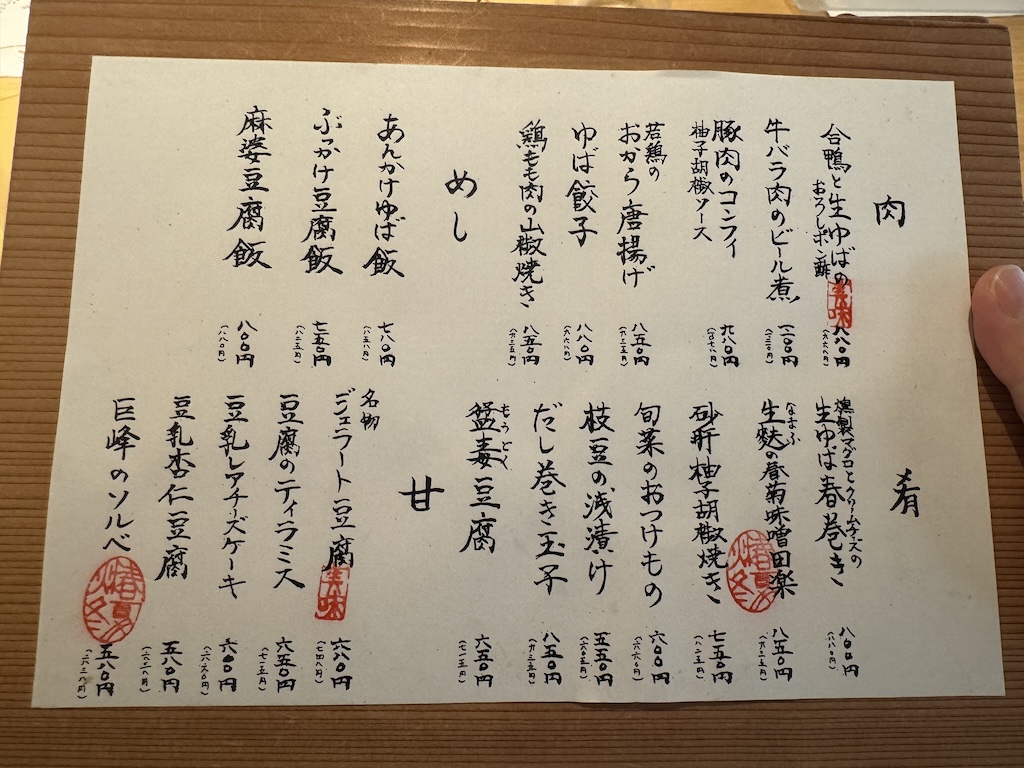 肉
合鴨と生ゆばの
おろしポン酢
美味
八八〇円
(九六八円)
牛バラ肉のビール煮
一二〇〇円
豚肉のコンフィ
柚子胡椒ソース
九八〇円
(一〇七八円)
若鶏の
おから唐揚げ
八五〇円
(九三五円)
ゆば餃子
八八〇円
(九六八円)
鶏もも肉の山椒焼き
八五〇円
(九三五円)
めし
あんかけゆば飯
七八〇円
(八五八円)
ぶっかけ豆腐飯
七五〇円
(八二五円)
麻婆豆腐飯
八〇〇円
(八八〇円)
肴
燻製マグロとクリームチーズの
生ゆば春巻き
八〇〇円
(八八〇円)
生麩の春菊味噌田楽
なまふ
八五〇円
(九三五円)
砂肝柚子胡椒焼き
七五〇円
(八二五円)
旬菜のおつけもの
六〇〇円
(六六〇円)
枝豆の浅漬け
五五〇円
(六〇五円)
だし巻き玉子
八五〇円
(九三五円)
猛毒豆腐
もうどく
六五〇円
(七一五円)
甘
名物
ジェラート豆腐
美味
六八〇円
(七四八円)
豆腐のティラミス
六五〇円
(七一五円)
豆乳レアチーズケーキ
六〇〇円
(六六〇円)
豆乳杏仁豆腐
五八〇円
(六三八円)
巨峰のソルベ
五八〇円
(六三八円)